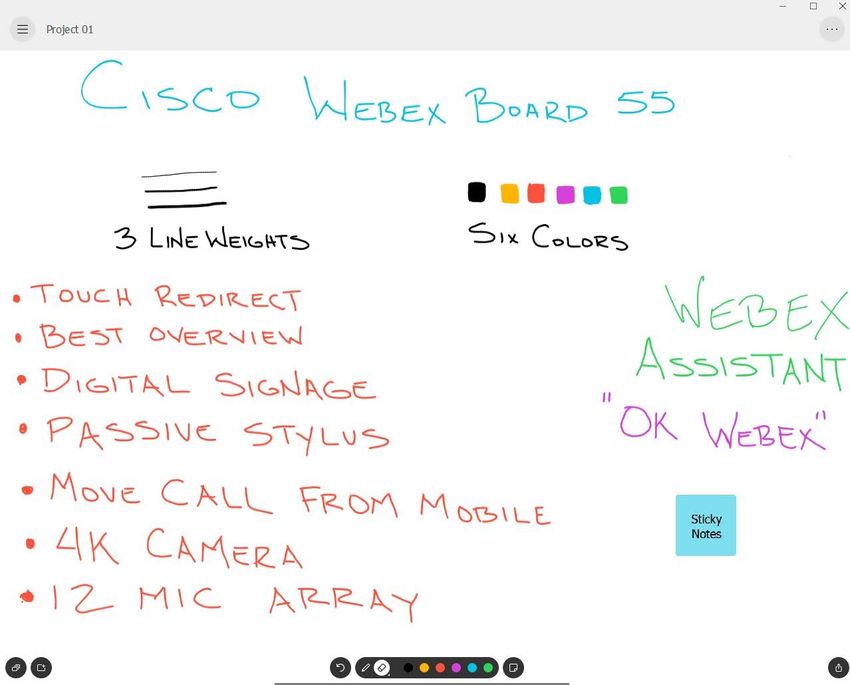 Project 01
CISCO WEBEX BOARD 55
3 LINE WEIGHTS
SIX COLORS
• TOUCH REDIRECT
• BEST OVERVIEW
• DIGITAL SIGNAGE
• PASSIVE STYLUS
• MOVE CALL FROM MOBILE
• 4K CAMERA
• 12 MIC ARRAY
WEBEX
ASSISTANT
"OK WEBEX"
Sticky
Notes